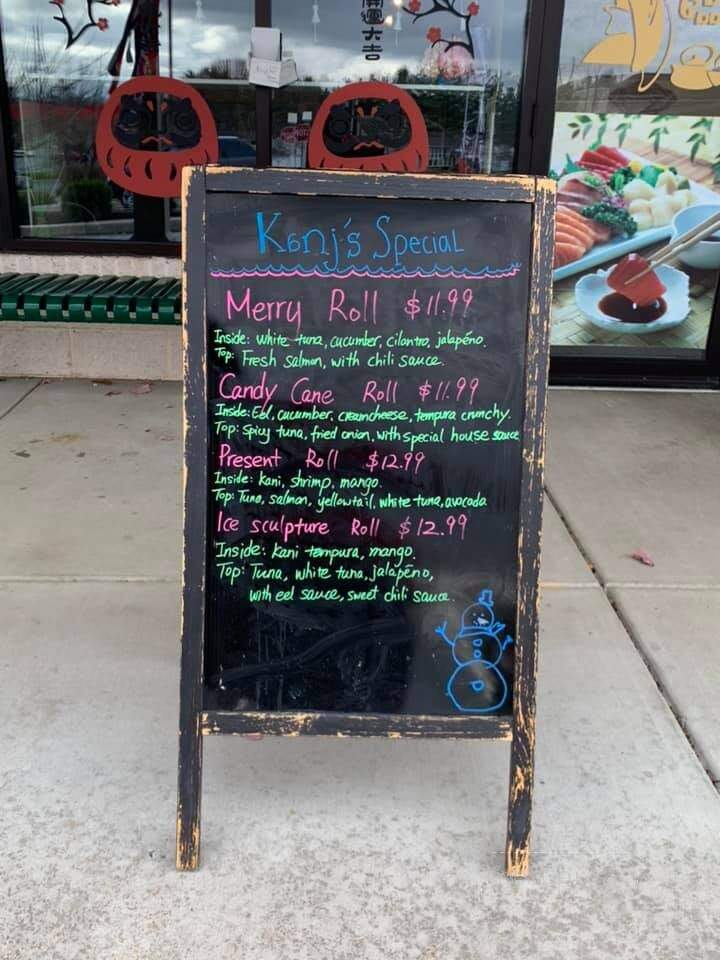 開運大吉
Kanj's Special
Merry Roll $11.99
Inside: white tuna, cucumber, cilantro, jalapéno.
Top: Fresh Salmon, with chili sauce.
Candy Cane Roll $11.99
Inside: Eel, cucumber, creamcheese, tempura crunchy.
Top: Spicy tuna, fried onion, with special house sauce
Present Roll $12.99
Inside: kani, shrimp, mango.
Top: Tuna, salmon, yellowtail, white tuna, avocada
Ice sculpture Roll $12.99
Inside: kani tempura, mango.
Top: Tuna, white tuna, jalapéno,
with eel sauce, sweet chili sauce.